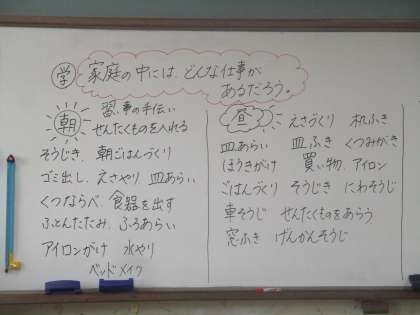 学 家庭の中には、どんな仕事が
あるだろう。
朝
事の手伝い
せんたくものを入れる
そうじき、朝ごはんづくり
ゴミ出し、えさやり 皿あらい
くつならべ、食器を出す
ふとんたたみ、ふろあらい
アイロンがけ 水やり
ベッドメイク
昼 えさづくり 机ふき
皿あらい 皿ふき くつみがき
ほうきがけ 買い物、アイロン
ごはんづくり そうじき にわそうじ
車そうじ せんたくものをあらう
窓ふき げんかんそうじ